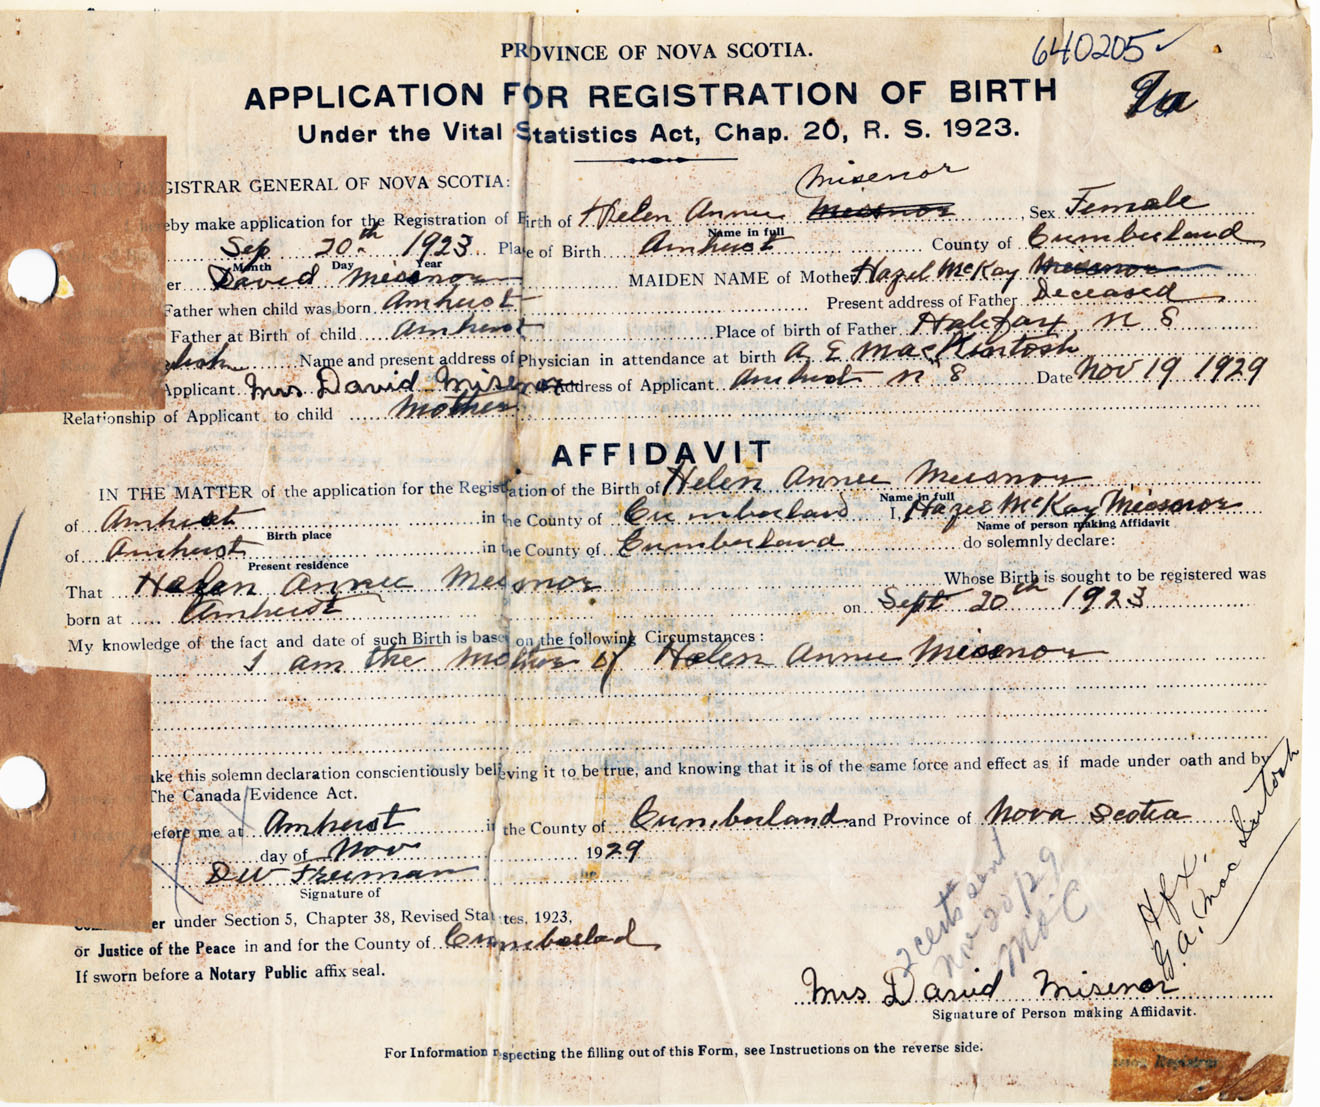 PROVINCE OF NOVA SCOTIA.
640205 ✓
APPLICATION FOR REGISTRATION OF BIRTH
Under the Vital Statistics Act, Chap. 20, R. S. 1923.
GISTRAR GENERAL OF NOVA SCOTIA:
Misenor
eby make application for the Registration of Birth of Helen Annie Meisnor Sex Female
Name in full
Sep 20th 1923 Place of Birth Amherst County of Cumberland
Month Day Year
er David Meisnor MAIDEN NAME of Mother Hazel McKay Meisnor
Father when child was born Amherst Present address of Father Deceased
Father at Birth of child Amherst Place of birth of Father Halifax N S
lish Name and present address of Physician in attendance at birth A E MacKintosh
Applicant Mrs David Misenor Address of Applicant Amherst N S Date Nov 19 1929
Relationship of Applicant to child Mother
AFFIDAVIT
IN THE MATTER of the application for the Registration of the Birth of Helen Annie Meisnor
Name in full
of Amherst in the County of Cumberland I, Hazel McKay Meisnor
Birth place Name of person making Affidavit
of Amherst in the County of Cumberland do solemnly declare:
Present residence
That Helen Annie Meisnor Whose Birth is sought to be registered was
born at Amherst on Sept 20th 1923
My knowledge of the fact and date of such Birth is base on the following Circumstances:
I am the Mother of Helen Annie Misenor
ake this solemn declaration conscientiously believing it to be true, and knowing that it is of the same force and effect as if made under oath and by
The Canada Evidence Act.
efore me at Amherst in the County of Cumberland and Province of Nova Scotia
day of Nov 1929
D W Freeman
Signature of
er under Section 5, Chapter 38, Revised Statutes, 1923,
or Justice of the Peace in and for the County of Cumberlad
If sworn before a Notary Public affix seal.
2 cents sent
Nov 20/29
Hfx.
G. A. MacIntosh
Mrs David Misenor
Signature of Person making Affiidavit.
For Information respecting the filling out of this Form, see Instructions on the reverse side.